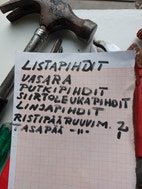 LISTAPIHDIT
VASARA
PUTKIPIHDIT
SIIRTOLEUKAPIHDIT
LINJAPIHDIT
RISTIPÄÄRUUVIM. 2
TASAPÄÄ -"- 1